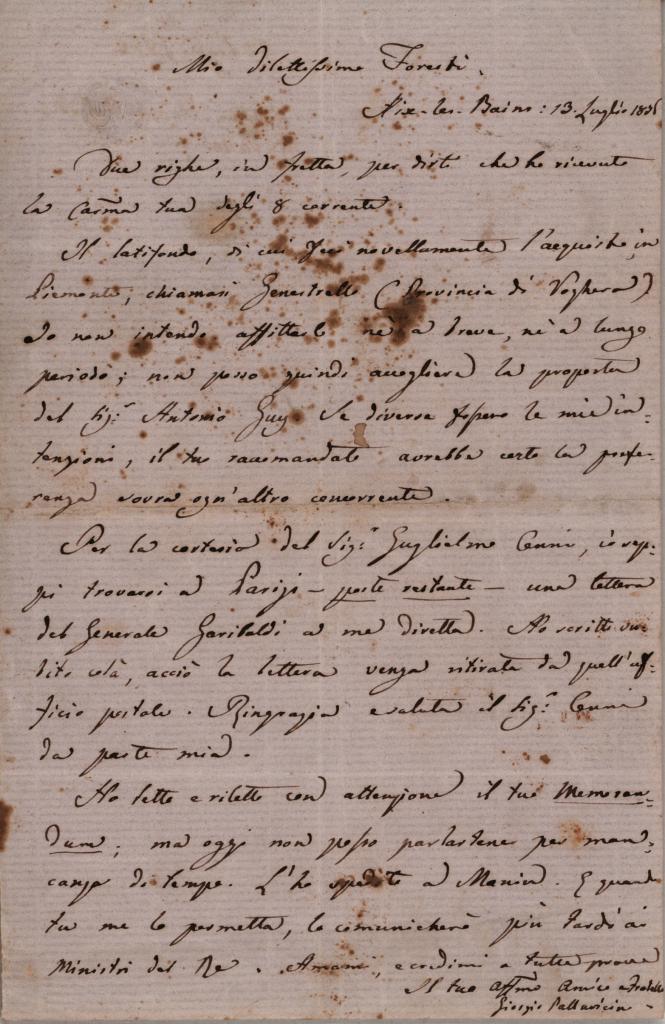 Mio dilettissimo Foresti.
Aix-les-Bains: 13. Luglio 185
Due righe, in fretta, per dirti che ho ricevuto
la Carma tua degli 8 corrente.
Il latifondo, di cui feci novellamente l'acquisto in
Piemonte, chiamasi Genestrello (Provincia di Voghera).
Io non intendo affittarlo nè a breve, nè a lungo
periodo; non posso quindi accogliere la proposta
del Sigr. Antonio Guy. Se diverse fossero le mie in-
tenzioni, il tuo raccomandato avrebbe certo la prefe-
renza sovra ogn'altro concorrente.
Per la cortesia del Sigr. Guglielmo Cenni, io sep-
pi trovarsi a Parigi – poste restante – una lettera
del Generale Garibaldi a me diretta. Ho scritto su-
bito colà, acciò la lettera venga ritirata da quell'uf-
ficio postale. Ringrazia e saluta il Sigr. Cenni
da parte mia.
Ho letto e riletto con attenzione il tuo Memoran-
dum; ma oggi non posso parlartene per man-
canza di tempo. L'ho spedito a Manin. E quando
tu me lo permetta, lo comunicherò più tardi ai
Ministri del Re. Amami, e credimi a tutte prove
Il tuo affmo Amico e Fratello
Giorgio Pallavicino